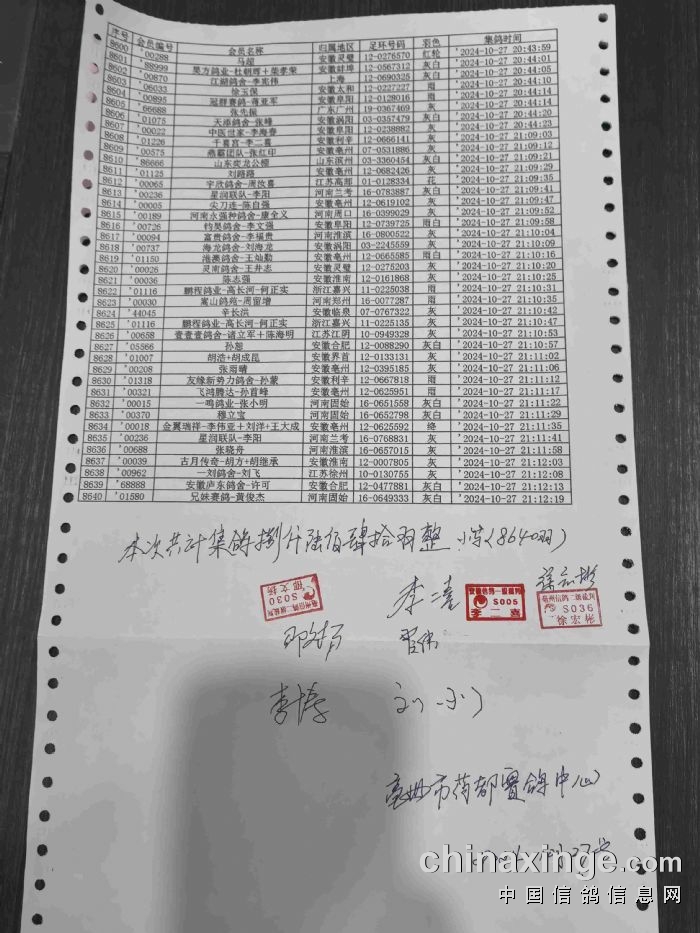 序号 会员编号 会员名称 归属地区 足环号码 羽色 集鸽时间
8600 '00288 马超 安徽灵璧 12-0276570 红轮 '2024-10-27 20:43:59
8601 '88999 昊方鸽业-杜朝晖+柴孝荣 安徽蚌埠 12-0567312 灰白 '2024-10-27 20:44:01
8602 '00870 江湖鸽舍-李宪伟 上海 12-0690325 灰白 '2024-10-27 20:44:05
8603 '06033 徐玉保 安徽太和 12-0227227 雨 '2024-10-27 20:44:10
8604 '00895 冠群赛鸽-蒋亚军 安徽阜阳 12-0128016 雨 '2024-10-27 20:44:14
8605 '66688 张先振 广东广州 19-0367469 灰 '2024-10-27 20:44:14
8606 '01075 天添鸽舍-张峰 安徽涡阳 03-0357479 灰白 '2024-10-27 20:44:20
8607 '00022 中医世家-李海春 安徽阜阳 12-0238882 灰 '2024-10-27 20:44:23
8608 '01226 千喜宫-李二喜 安徽利辛 12-0666141 灰 '2024-10-27 21:09:03
8609 '00575 燕霸团队-张红印 安徽亳州 07-0531886 灰 '2024-10-27 21:09:12
8610 '86666 山东奕龙公棚 山东滨州 03-3360454 灰白 '2024-10-27 21:09:21
8611 '01125 刘路路 安徽亳州 12-0682426 灰 '2024-10-27 21:09:29
8612 '00065 宇欣鸽舍-周汝喜 江苏高邮 01-0128334 花 '2024-10-27 21:09:35
8613 '00236 星润联队-李阳 河南兰考 16-0783887 灰白 '2024-10-27 21:09:41
8614 '00005 尖刀连-陈自强 安徽亳州 12-0619102 灰 '2024-10-27 21:09:47
8615 '00189 河南永强种鸽舍-康全义 河南周口 16-0399029 灰 '2024-10-27 21:09:52
8616 '00726 钧昊鸽舍-李文强 安徽阜阳 12-0739725 雨白 '2024-10-27 21:09:58
8617 '00094 富贵鸽舍-李福贵 河南淮滨 灰 '2024-10-27 21:10:04
8618 '00737 海龙鸽舍-刘海龙 安徽涡阳 03-2245559 灰 '2024-10-27 21:10:09
8619 '01150 港澳鸽舍-王灿勤 安徽亳州 12-0665585 雨白 '2024-10-27 21:10:16
8620 '00026 灵南鸽舍-王井志 安徽灵璧 12-0275203 灰 '2024-10-27 21:10:20
8621 '00036 陈志强 安徽淮南 12-0161868 灰 '2024-10-27 21:10:25
8622 '01116 鹏程鸽业-高长河-何正实 浙江嘉兴 11-0225038 雨 '2024-10-27 21:10:31
8623 '00030 嵩山鸽苑-周留增 河南郑州 16-0077287 雨 '2024-10-27 21:10:35
8624 '44045 辛长洪 安徽临泉 07-0767322 灰 '2024-10-27 21:10:42
8625 '01116 鹏程鸽业-高长河-何正实 浙江嘉兴 11-0225135 灰 '2024-10-27 21:10:47
8626 '00658 壹壹壹鸽舍-诸立军+陈海明 江苏江阴 10-0949328 灰 '2024-10-27 21:10:53
8627 '05566 孙恕 安徽合肥 12-0088290 灰白 '2024-10-27 21:10:57
8628 '01007 胡浩+胡成昆 安徽界首 12-0133131 灰 '2024-10-27 21:11:02
8629 '00208 张雨晴 安徽亳州 12-0395185 灰 '2024-10-27 21:11:06
8630 '01318 友缘新势力鸽舍-孙蒙 安徽利辛 12-0667818 雨 '2024-10-27 21:11:12
8631 '00321 飞鸿腾达-孙首峰 安徽亳州 12-0625951 雨 '2024-10-27 21:11:17
8632 '00015 一鸣鸽业-张小明 河南固始 16-0651558 灰白 '2024-10-27 21:11:22
8633 '00370 穆立宝 河南固始 16-0652798 灰白 '2024-10-27 21:11:29
8634 '00018 金翼瑞祥-李伟亚+刘洋+王大成 安徽亳州 12-0625592 绛 '2024-10-27 21:11:35
8635 '00236 星润联队-李阳 河南兰考 16-0768831 灰 '2024-10-27 21:11:41
8636 '00688 张晓舟 河南淮滨 16-0657015 灰 '2024-10-27 21:11:58
8637 '00039 古月传奇-胡方+胡继承 安徽淮南 12-0007805 灰 '2024-10-27 21:12:03
8638 '00962 一刘鸽舍-刘飞 江苏徐州 10-0130755 灰 '2024-10-27 21:12:08
8639 '68888 安徽庐东鸽舍-许可 安徽合肥 12-0477881 灰白 '2024-10-27 21:12:13
8640 '01580 兄妹赛鸽-黄俊杰 河南固始 16-0649333 灰白 '2024-10-27 21:12:19
本次共计集鸽捌仟陆佰肆拾羽整 小写(8640羽)
亳州信鸽二级裁判
S030
邵文扬
李二喜
安徽信鸽一级裁判
S005
李二喜
徐宏彬
亳州信鸽二级裁判
S036
徐宏彬
邵文扬
亳州市药都赛鸽中心
chinaxinge.com
中国信鸽信息网